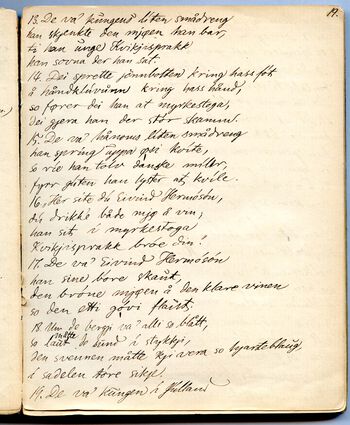 19.
13. De va' kungens liten smådreng
han skjenkte den mjøen han bar,
ti han unge Kvikjisprakk
han sovna der han sat.
14. Dei sprette jønnbolten kring hass fot
å håndklúvúnn kring hass hånd,
so fører dei han at myrkestoga,
dei gjera han der stór skamm.
15. De va' hånoms liten smådreng
han spring uppå kvite,
so rie han tolv danske miller,
fyrr guten han lyster at kvile.
16. Her site du Eivind Hermósón,
du drikke både mjø å vin,
han sit i myrkestoga
Kvikjisprakk bróe din!
17. De va' Eivind Hermósón
han sine bore skaut,
den bróne mjøen å den klare vinen
so den etti flaut.
18. Um de bergji va' alli so blått,
so måtte de sund i stykkji,
den svennen måtte kji vera so hjarteblaúg
i sadelen tore sikje.
19. De va' kungen i